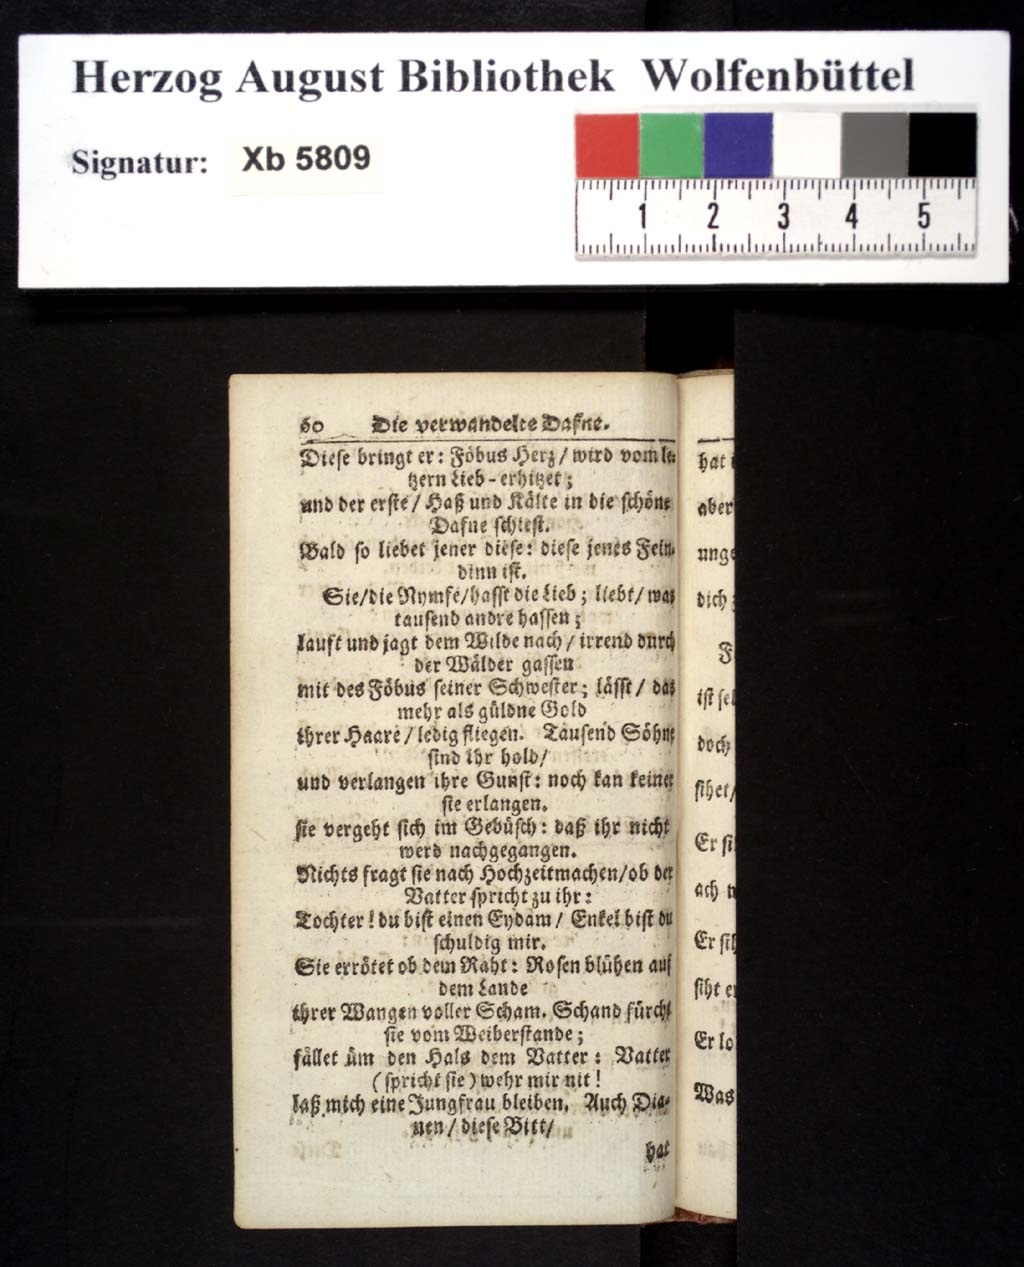 Herzog August Bibliothek Wolfenbüttel
Signatur: Xb 5809
1 2 3 4 5
60 Die verwandelte Dafne.
Diese bringt er: Föbus Herz/ wird vom le-
tzern Lieb-erhitzet;
und der erste/ Haß und Kälte in die schöne
Dafne schiest.
Bald so liebet jener diese: diese jenes Fein-
dinn ist.
Sie/die Nymfe/hasst die Lieb; liebt/ was
tausend andre hassen;
lauft und jagt dem Wilde nach/ irrend durch
der Wälder gassen
mit des Föbus seiner Schwester; lässt/ das
mehr als güldne Gold
ihrer Haare/ ledig fliegen. Tausend Söhne
sind ihr hold/
und verlangen ihre Gunst: noch kan keiner
sie erlangen.
sie vergeht sich im Gebüsch: daß ihr nicht
werd nachgegangen.
Nichts fragt sie nach Hochzeitmachen/ob der
Vatter spricht zu ihr:
Tochter! du bist einen Eydam/ Enkel bist du
schuldig mir.
Sie errötet ob dem Raht: Rosen blühen auf
dem Lande
ihrer Wangen voller Scham. Schand fürcht
sie vom Weiberstande;
fället üm den Hals dem Vatter: Vatter
(spricht sie) wehr mir nit!
laß mich eine Jungfrau bleiben. Auch Dia-
nen/ diese Bitt/
hat
hat
aber
dich
doch
sihet/
Er
ach
Er
siht
Er
Was